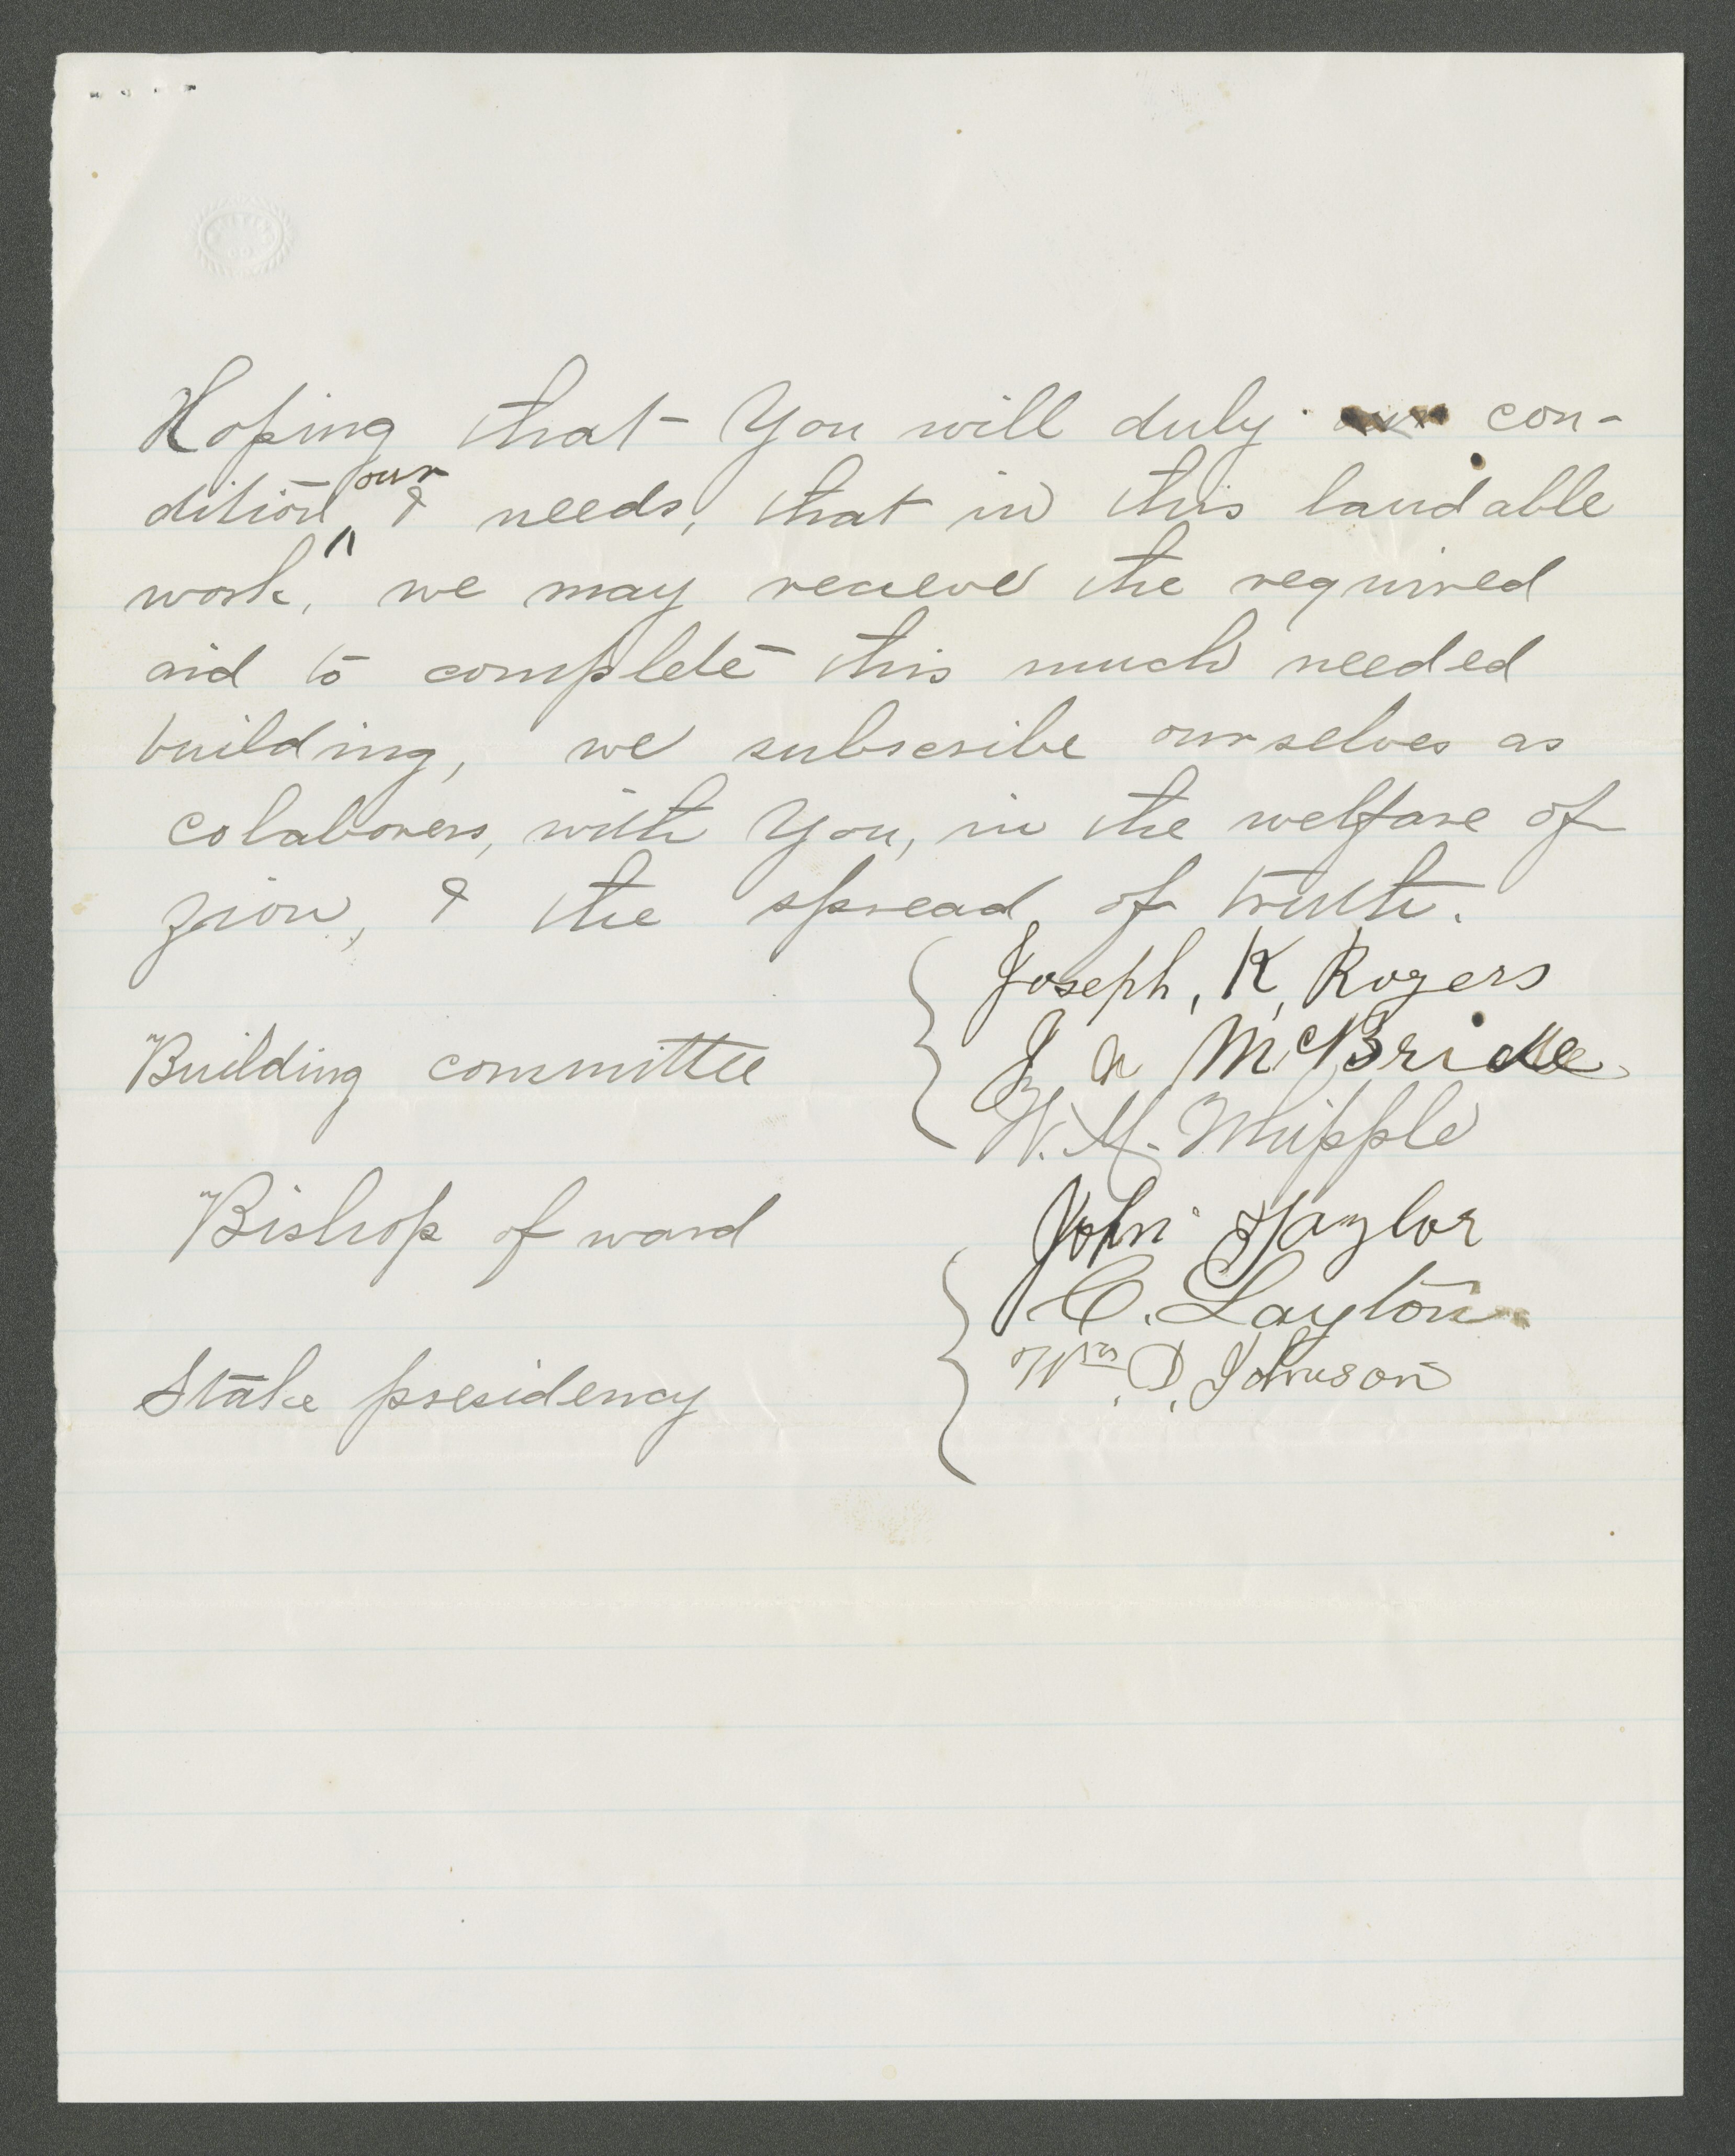 Hoping that You will duly our con-
dition our & needs, that in this laudable
work, we may recieve the required
aid to complete this much needed
building, we subscribe ourselves as
colaborers, with You, in the welfare of
zion, & the spread of truth.
Joseph, K, Rogers
Building committee
J A McBride
W. M. Whipple
Bishop of ward
John Taylor
C. Layton
Wm. D. Johnson
Stake presidency